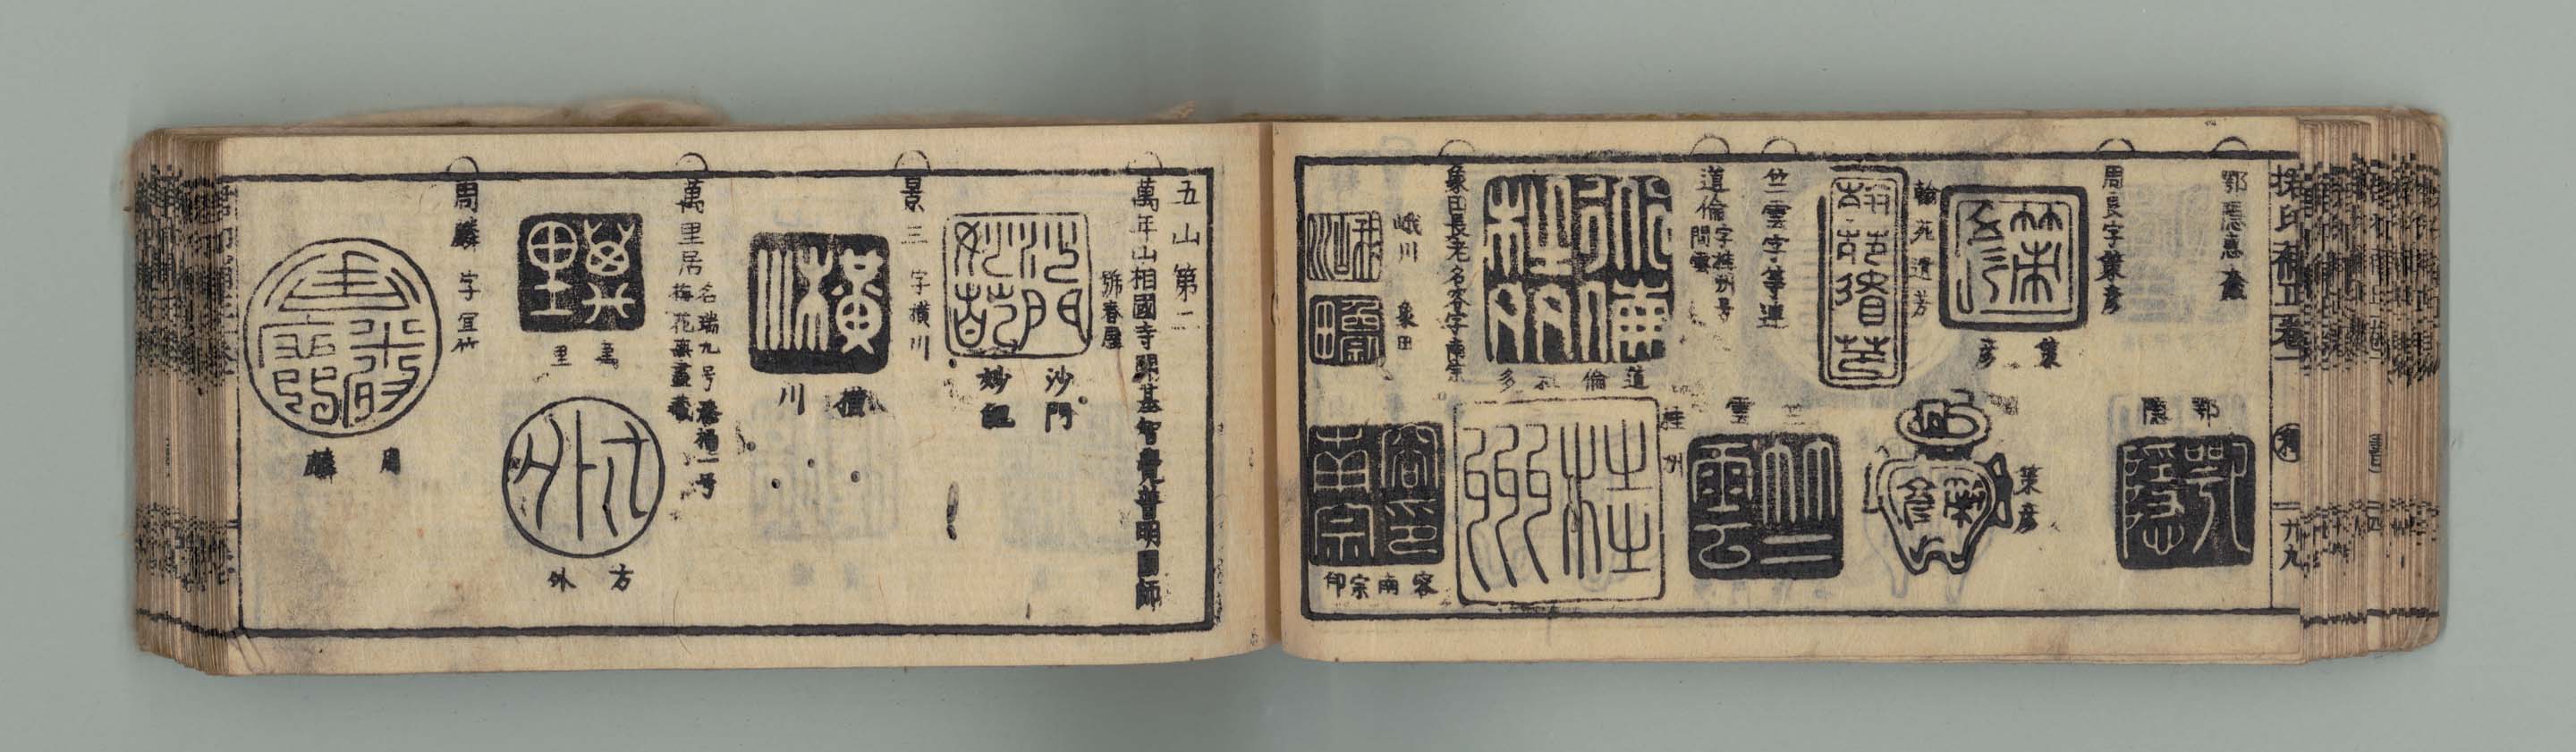 鄂隱惠奯
鄂隱
周良字策彦
策彦
策彦
翰苑遺芳
竺雲字等連
竺雲
道倫字桂州号
問雲
道倫
桂州
象田長老名容字南宗
峨川
象田
容南宗印
五山第二
萬年山相國寺開基智覺普明國師
號春屋
沙門
妙葩
景三 字横川
横川
萬里居名瑞九号
梅花無盡藏
萬里
方外
周麟 字宜竹
周麟